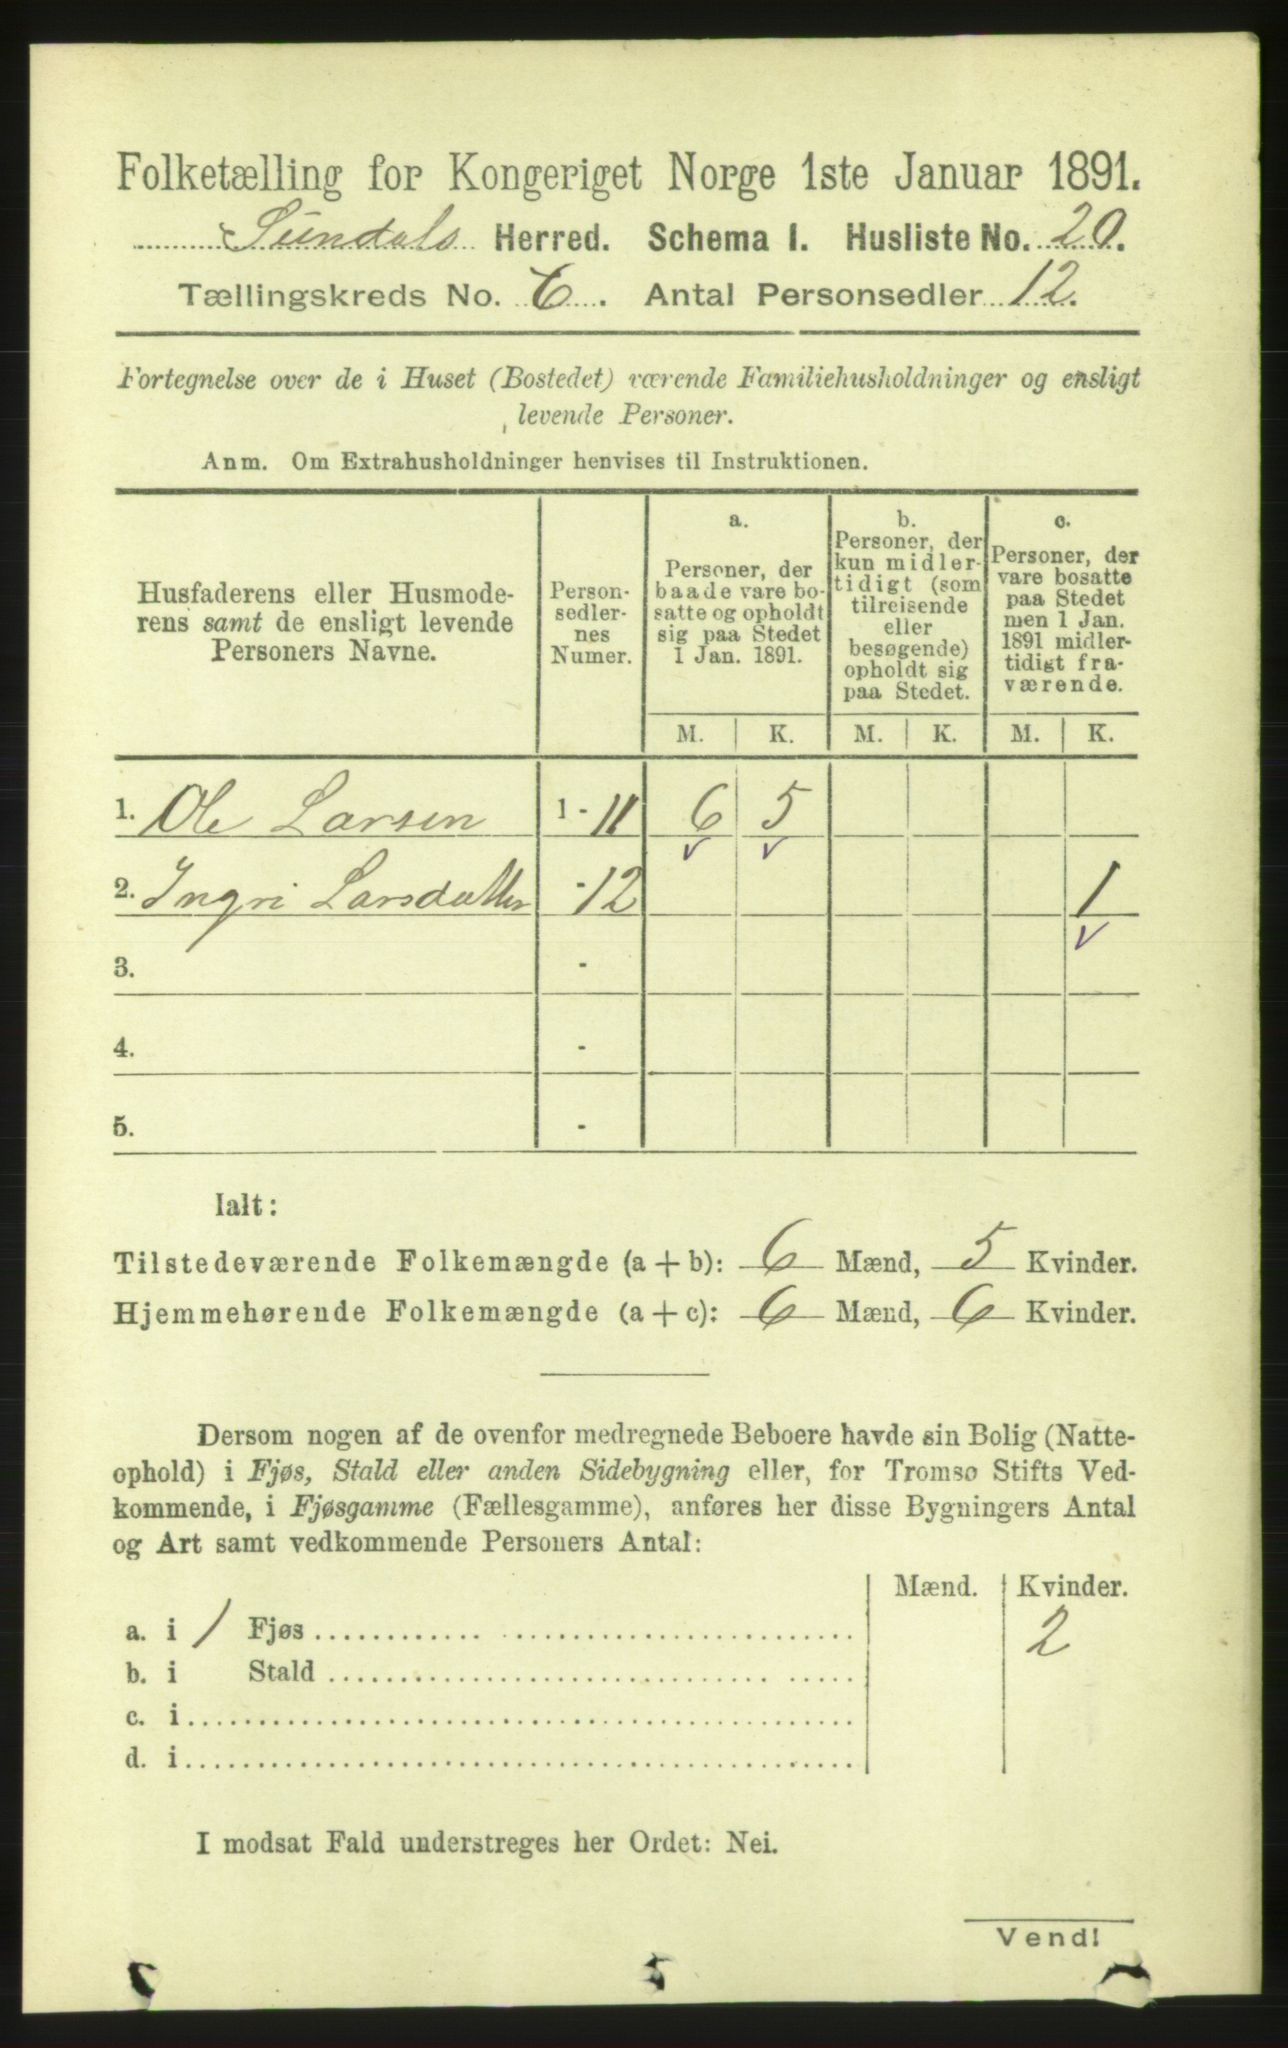 Folketælling for Kongeriget Norge 1ste Januar 1891.
Sundals Herred. Schema I. Husliste No. 20.
Tællingskreds No. 6. Antal Personsedler 12.
Fortegnelse over de i Huset (Bostedet) værende Familiehusholdninger og ensligt
levende Personer.
Anm. Om Extrahusholdninger henvises til Instruktionen.
Husfaderens eller Husmode-
rens samt de ensligt levende
Personers Navne.
Person-
sedler-
nes
Numer.
a.
Personer, der
baade vare bo-
satte og opholdt
sig paa Stedet
1 Jan. 1891.
b.
Personer, der
kun midler-
tidigt (som
tilreisende
eller
besøgende)
opholdt sig
paa Stedet.
c.
Personer, der
vare bosatte
paa Stedet
men 1 Jan.
1891 midler-
tidigt fra-
værende.
M. K. M. K. M. K.
1. Ole Larsen 1 - 11 6 5
2. Ingri Larsdatter - 12 1
3. -
4. -
5. -
Ialt:
Tilstedeværende Folkemængde (a + b): 6 Mænd, 5 Kvinder.
Hjemmehørende Folkemængde (a + c): 6 Mænd, 6 Kvinder.
Dersom nogen af de ovenfor medregnede Beboere havde sin Bolig (Natte-
ophold) i Fjøs, Stald eller anden Sidebygning eller, for Tromsø Stifts Ved-
kommende, i Fjøsgamme (Fællesgamme), anføres her disse Bygningers Antal
og Art samt vedkommende Personers Antal:
Mænd. Kvinder.
a. i 1 Fjøs 2
b. i Stald
c. i
d. i
I modsat Fald understreges her Ordet: Nei.
Vend!